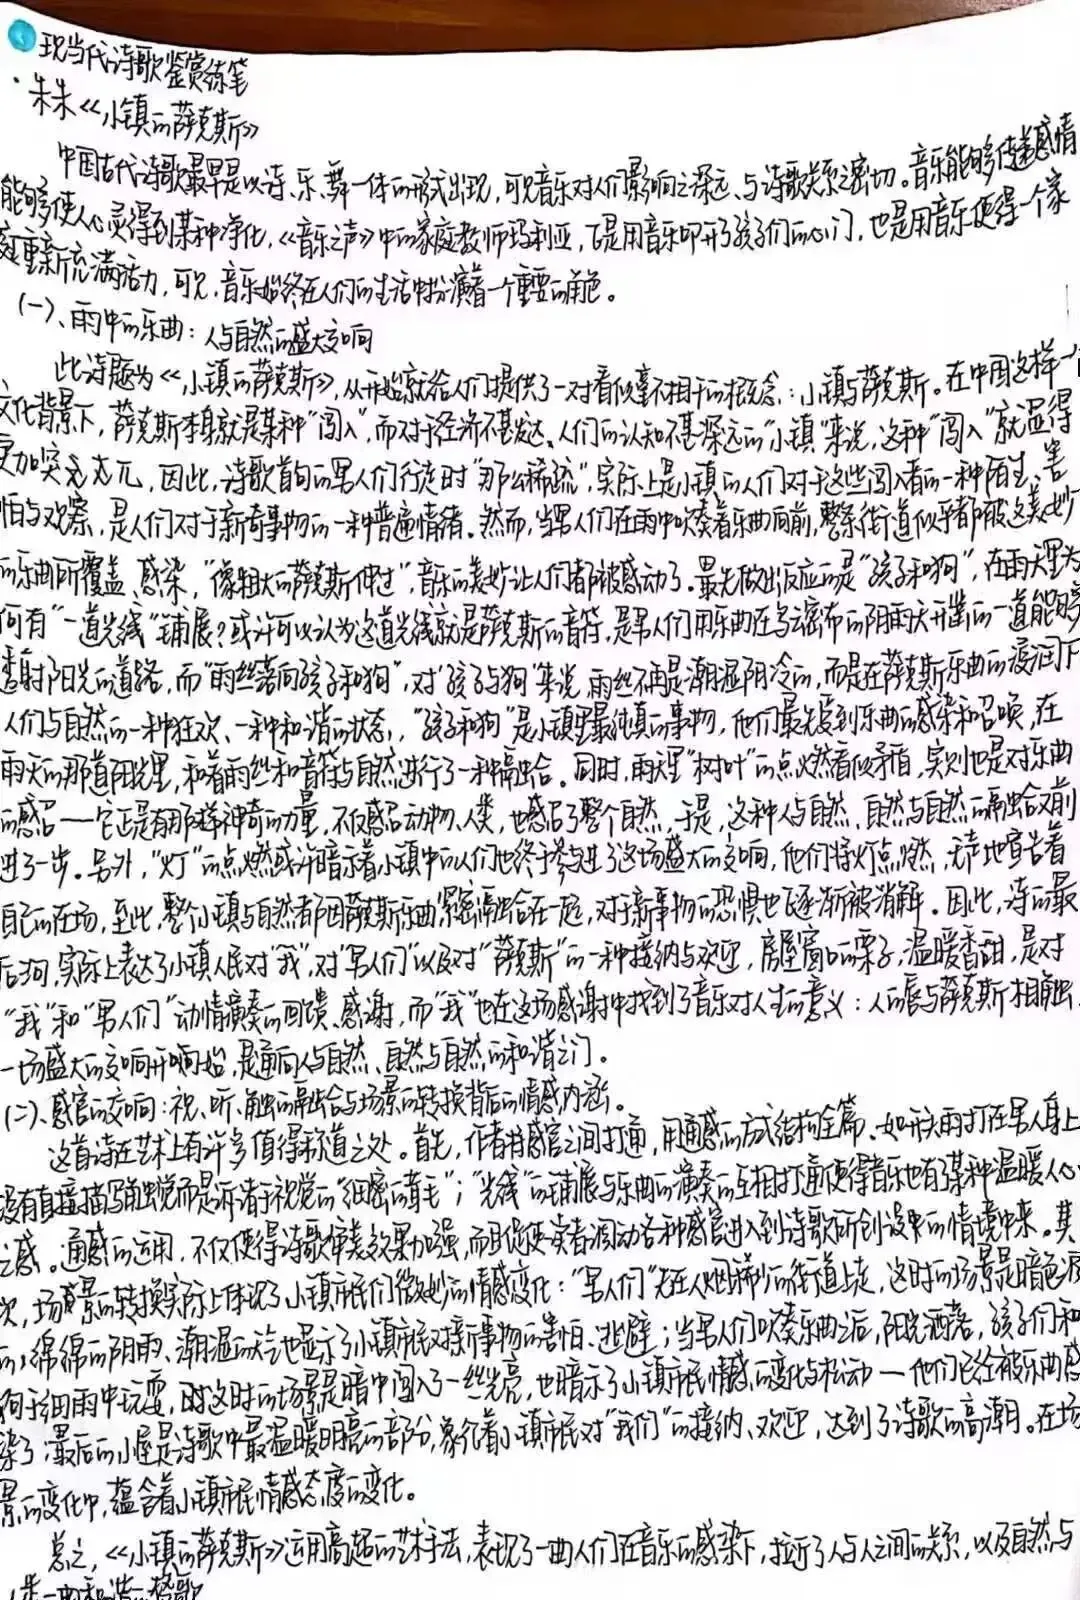 现当代诗歌鉴赏练笔
·朱朱《小镇的萨克斯》
中国古代诗歌最早是以诗、乐、舞一体的形式出现，可见音乐对人们影响之深远、与诗歌关系之密切。音乐能够传递感情
能够使人心灵得到某种净化，《音乐之声》中的家庭教师玛利亚，正是用音乐叩开了孩子们的心门，也是用音乐使得一个家
庭重新充满活力，可见，音乐始终在人们的生活中扮演着一个重要的角色。
(一)、雨中的乐曲：人与自然的盛大交响
此诗题为《小镇的萨克斯》，从开始就给人们提供了一对看似毫不相干的概念：小镇与萨克斯。在中国这样一个
文化背景下，萨克斯本身就是某种“闯入”，而对于经济不甚发达、人们的认知不甚深远的“小镇”来说，这种“闯入”就显得
更加突兀，因此，诗歌首句的男人们行走时“那么稀疏”，实际上是小镇的人们对于这些闯入者的一种陌生、害
怕与观察，是人们对于新奇事物的一种普遍情绪。然而，当男人们在雨中吹奏着乐曲向前，整条街道似乎都被这美妙
的乐曲所覆盖、感染，“像粗大的萨克斯伸过”，音乐的美妙让人们都被感动了。最先做出反应的是“孩子和狗”，在雨天里为
何有“一道光线”铺展？或许可以认为这道光线就是萨克斯的音符，是男人们用乐曲在乌云密布的阴雨天开凿的一道能够
透射阳光的道路，而“雨丝落向孩子和狗”，对“孩子与狗”来说，雨丝不再是潮湿阴冷的，而是在萨克斯乐曲的浸润下
人们与自然的一种狂欢、一种和谐的状态，“孩子和狗”是小镇里最纯真的事物，他们最先受到乐曲的感染和召唤，在
雨天的那道阳光里，和着雨丝和音符与自然进行了一种融合。同时，雨天里“树叶”的点燃看似矛盾，实则也是对乐曲
的感召——它正是有那样神奇的力量，不仅感召动物、人类，也感召了整个自然，于是，这种人与自然、自然与自然的融合又前
进了一步。另外，“灯”的点燃或许暗示着小镇中的人们也终于参与进了这场盛大的交响，他们将灯点燃，无声地宣告着
自己的在场，至此，整个小镇与自然都因萨克斯乐曲紧密融合在一起，对于新事物的恐惧也逐渐被消解。因此，诗的最
后两句，实际上表达了小镇人民对“我”，对“男人们”以及对“萨克斯”的一种接纳与欢迎，房屋窗口的栗子，温暖香甜，是对
“我”和“男人们”动情演奏的回馈、感谢，而“我”也在这场感谢中找到了音乐对人生的意义：人的唇与萨克斯相触，
一场盛大的交响开始，是通向人与自然、自然与自然的和谐之门。
(二)、感官的交响：视、听、触的融合与场景的转换背后的情感内涵。
这首诗在艺术上有许多值得称道之处。首先，作者将感官之间打通，用通感的方式结构全篇、如形容雨打在男人身上
没有直接描写触觉而是诉诸于视觉的“细密的茸毛”；“光线”的铺展与乐曲的演奏的互相打通使得音乐也有了某种温暖人心
之感。通感的运用，不仅使得诗歌审美效果加强，而且促使读者调动各种感官进入到诗歌所创设的情境中来。其
次，场景的转换实际上体现了小镇市民们微妙的情感变化：“男人们”走在人烟稀少的街道上走，这时的场景是暗色调
的，绵绵的阴雨，潮湿的天气也显示了小镇市民对新事物的害怕、逃避；当男人们吹奏乐曲之后，阳光洒落，孩子们和
狗于细雨中玩耍，这时的场景是暗中闯入了一丝光亮，也暗示了小镇市民情感的变化与松动——他们已经被乐曲感
染了；最后的小屋是诗歌中最温暖明亮的部分，象征着小镇市民对“我们”的接纳、欢迎，达到了诗歌的高潮。在场
景的变化中，蕴含着小镇市民情感态度的变化。
总之，《小镇的萨克斯》运用高超的艺术手法，表现了一曲人们在音乐的感染下，拉近了人与人之间的关系，以及自然与
人类一曲和谐的赞歌